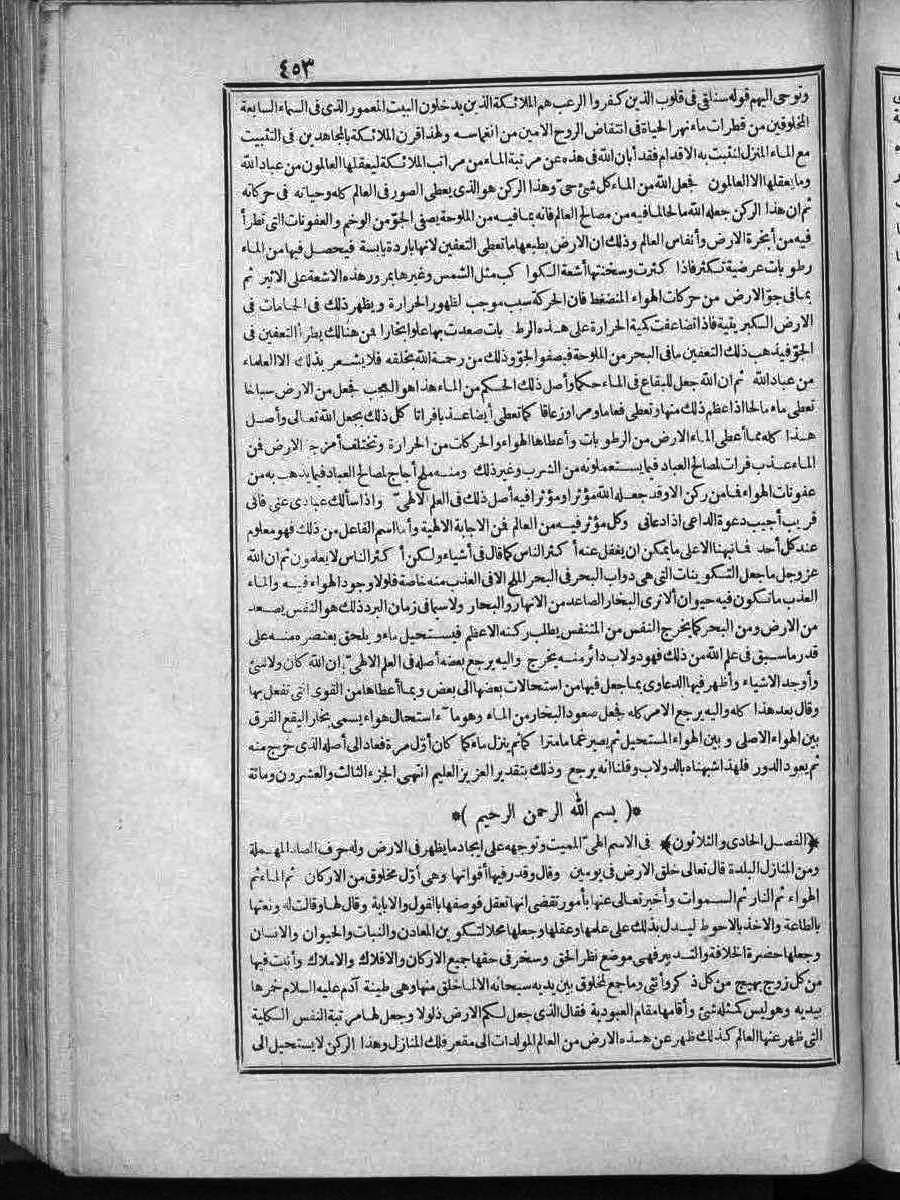 ٤٥٣
وتوحى اليهم قوله سنلقى فى قلوب الذين كفروا الرعب هم الملائكة الذين يدخلون البيت المعمور الذى فى السماء السابعة
المخلوقين من قطرات ماء نهر الحياة فى انتفاض الروح الامين من انغماسه ولهذا قرن الملائكة بالمجاهدين فى التثبيت
مع الماء المنزل لنثبت به الاقدام فقد أبان الله فى هذه عن مرتبة الماء من مراتب الملائكة ليعقلها العالمون من عباد الله
وما يعقلها الا العالمون فجعل الله من الماء كل شئ حىّ وهذا الركن هو الذى يعطى الصور فى العالم كله وحياته فى حركاته
ثم ان هذا الركن جعله الله مالحا لما فيه من مصالح العالم فانه بما فيه من الملوحة يصفى الجوّ من الوخم والعفونات التى تطرأ
فيه من أبخرة الارض وأنفاس العالم وذلك ان الارض بطبعها ما تعطى التعفين لانها باردة يابسة فيحصل فيها من الماء
رطوبات عرضية تكثر فاذا كثرت وسخنتها أشعة الكواكب مثل الشمس وغيرها بمرور هذه الاشعة على الاثير ثم
بما فى جوّ الارض من حركات الهواء المنضغط فان الحركة سبب موجب لظهور الحرارة ويظهر ذلك فى الحمامات فى
الارض الكبريتية فاذا تضاعفت كمية الحرارة على هذه الرطوبات صعدت بها علوا بخارا فمن هنالك يطرأ التعفين فى
الجوّ فيذهب ذلك التعفين ما فى البحر من الملوحة فيصفو الجوّ وذلك من رحمة الله بخلقه فلا يشعر بذلك الا العلماء
من عباد الله ثم ان الله جعل للبقاع فى الماء حكما وأصل ذلك الحكم من الماء هذا هو العجب فجعل من الارض سباخا
تعطى ماء مالحا اذا عظم ذلك منها وتعطى فعاما ومرا وزعاقا كما تعطى أيضا عذبا فراتا كل ذلك بجعل الله تعالى وأصل
هذا كله مما أعطى الماء الارض من الرطوبات وأعطاها الهواء والحركات من الحرارة وتختلف أمزجة الارض فمن
الماء عذب فرات لمصالح العباد فيما يستعملونه من الشرب وغير ذلك ومنه ملح أجاج لمصالح العباد فيما يذهب به من
عفونات الهواء فما من ركن الا وقد جعله الله مؤثرا ومؤثرا فيه أصل ذلك فى العلم الالهىّ واذا سألك عبادى عنى فانى
قريب أجيب دعوة الداعى اذا دعانى وكل مؤثر فيه من العالم فمن الاجابة الالهية وأما اسم الفاعل من ذلك فهو معلوم
عند كل أحد فما نبهنا الا على ما يمكن ان يغفل عنه أكثر الناس كما قال فى أشياء ولكن أكثر الناس لا يعلمون ثم ان الله
عز وجل ما جعل التكوينات التى هى دواب البحر فى البحر الملح الا فى العذب منه خاصة فلولا وجود الهواء فيه والماء
العذب ما تكون فيه حيوان ألا ترى البخار الصاعد من الانهار والبحار ولا سيما فى زمان البرد ذلك هو النفس يصعد
من الارض ومن البحر كما يخرج النفس من المتنفس يطلب ركنه الاعظم فيستحيل ماء ويلحق بعنصره منه على
قدر ما سبق فى علم الله من ذلك فهو دولاب دائر منه يخرج واليه يرجع بعضه أصله فى العلم الالهىّ ان الله كان ولا شئ
وأوجد الاشياء وأظهر فيها الدعاوى بما جعل فيها من استحالات بعضها الى بعض وبما أعطاها من القوى التى تفعل بها
وقال بعد هذا كله واليه يرجع الامر كله فجعل صعود البخار من الماء وهو ماء استحال هواء يسمى بخارا ليقع الفرق
بين الهواء الاصلى وبين الهواء المستحيل ثم يصير غماما متراكما ثم ينزل ماء كما كان أوّل مرة فعاد الى أصله الذى خرج منه
ثم يعود الدور فلهذا شبهناه بالدولاب وقلنا انه يرجع وذلك بتقدير العزيز العليم انتهى الجزء الثالث والعشرون ومائة
*( بسم الله الرحمن الرحيم )*
﴿الفصل الحادى والثلاثون﴾ فى الاسم الهىّ المميت وتوجهه على ايجاد ما يظهر فى الارض وله حرف الصاد المهملة
ومن المنازل البلدة قال تعالى خلق الارض فى يومين وقال وقدر فيها أقواتها وهى أوّل مخلوق من الاركان ثم الماء ثم
الهواء ثم النار ثم السموات وأخبر تعالى عنها بأمور تقضى انها تعقل فوصفها بالقول والاباية وقال لها وقالت له ونعتها
بالطاعة والاخذ بالاحوط ليدل بذلك على علمها وعقلها وجعلها محلا لتكوين المعادن والنبات والحيوان والانسان
وجعلها حضرة الخلافة والتدبير فهى موضع نظر الحق وسخر فى حقها جميع الاركان والافلاك والاملاك وأنبت فيها
من كل زوج بهيج من كل ذكر وأنثى وما جمع لمخلوق بين يديه سبحانه الا لما خلق منها وهى طينة آدم عليه السلام خمرها
بيديه وهو ليس كمثله شئ وأقامها مقام العبودية فقال الذى جعل لكم الارض ذلولا وجعل لها مرتبة النفس الكلية
التى ظهر عنها العالم كذلك ظهر عن هذه الارض من العالم المولدات الى مقعر فلك المنازل وهذا الركن لا يستحيل الى